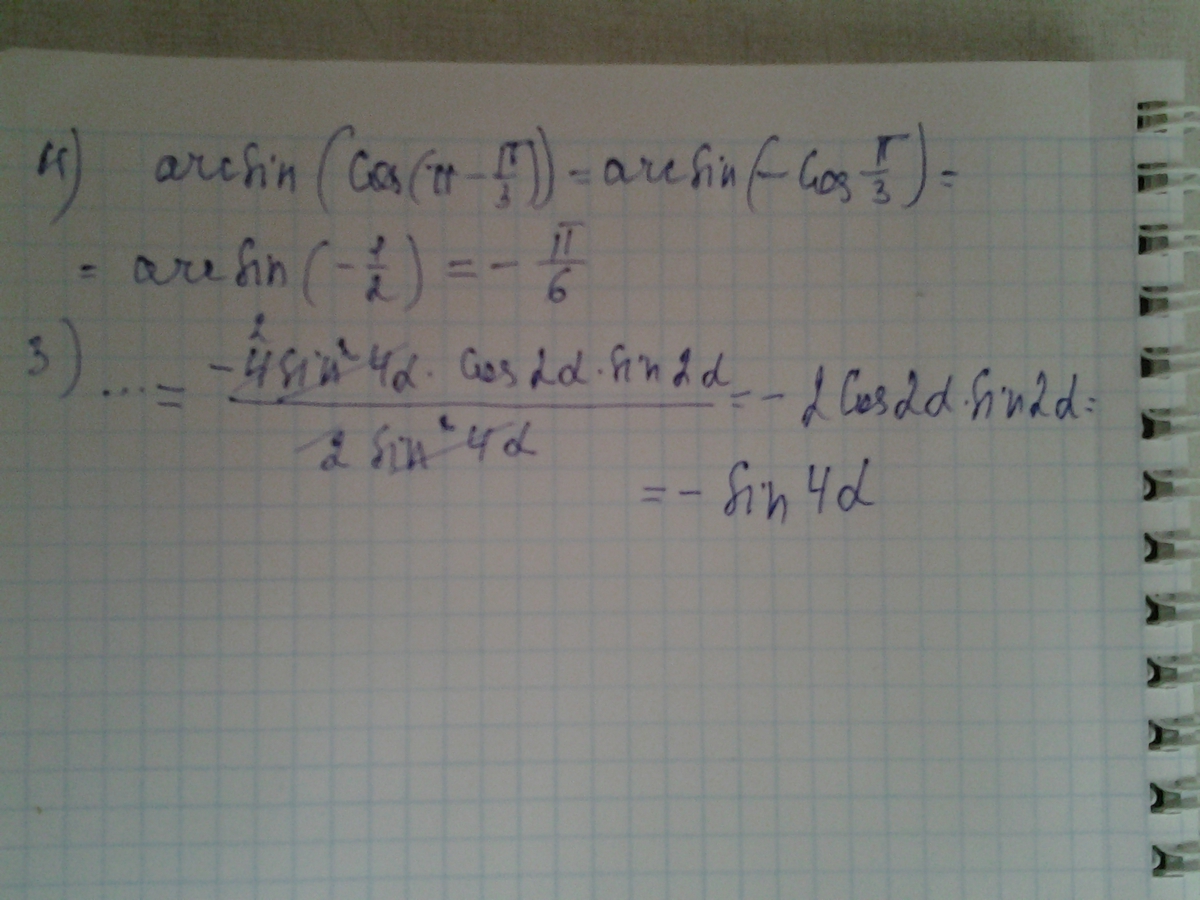 4) arcsin (cos(π - π/3)) = arcsin (- cos π/3) =
= arcsin (- 1/2) = - π/6
3) ... = -4 2 sin² 4α · cos 2α · sin 2α / 2 sin² 4α = - 2 cos 2α · sin 2α =
= - sin 4α